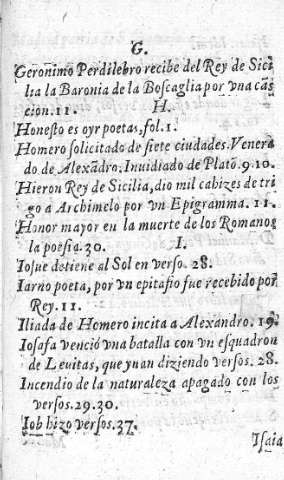 G.
Geronimo Perdilebro recibe del Rey de Sici
lia la Baronia de la Boscaglia por vna cãs
cion. 11.
H.
Honesto es oyr poetas, fol. 1.
Homero solicitado de siete ciudades. Venera
do de Alexãdro. Inuidiado de Platõ. 9. 10.
Hieron Rey de Sicilia, dio mil cahizes de tri
go a Archimelo por vn Epigramma. 11.
Honor mayor en la muerte de los Romanos
la poesia. 30.
I.
Iosue detiene al Sol en verso. 28.
Iarno poeta, por vn epitafio fue recebido por
Rey. 11.
Iliada de Homero incita a Alexandro. 19.
Iosafa venciò vna batalla con vn esquadron
de Leuitas, que yuan diziendo versos. 28.
Incendio de la naturaleza apagado con los
versos. 29. 30.
Iob hizo versos. 37.
Isaia